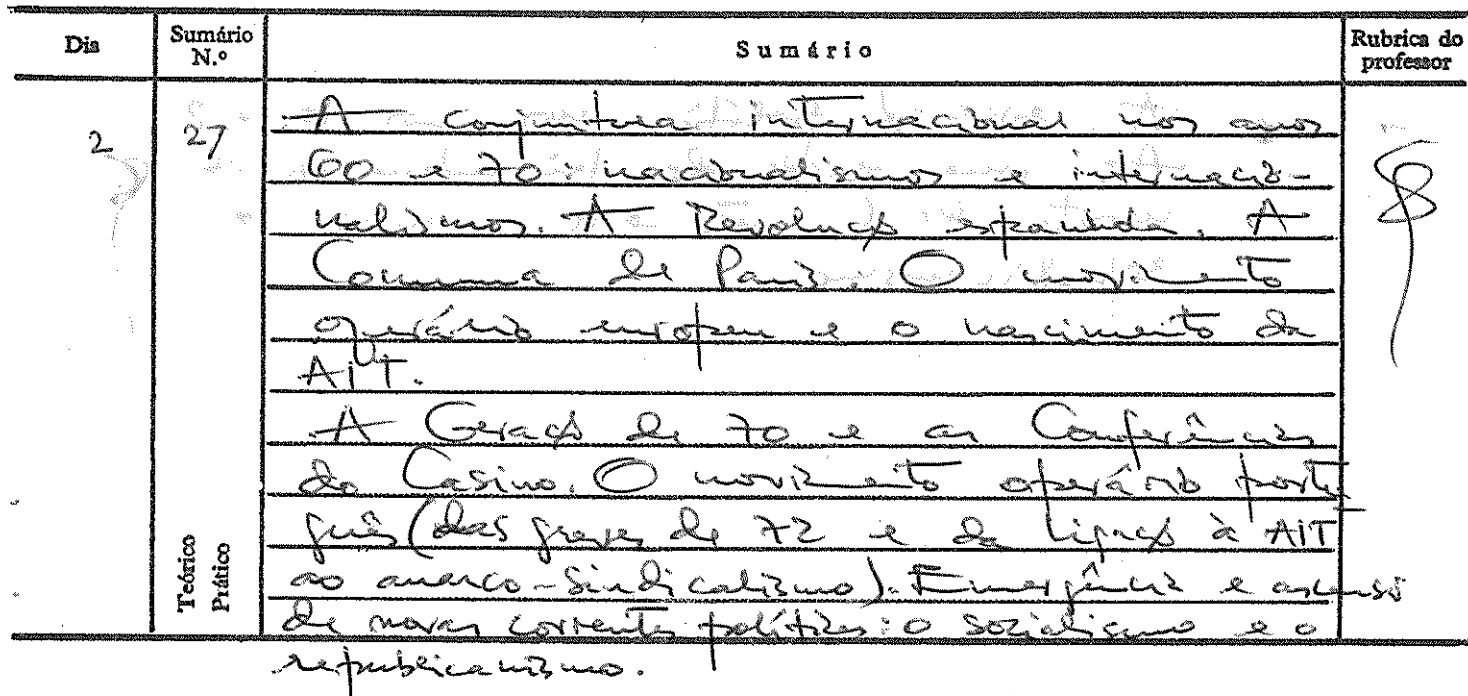 Dia Sumário N.º Sumário Rubrica do professor
2 27 A conjuntura internacional nos anos
60 e 70: nacionalismos e internacio-
nalismos. A Revolução espanhola. A
Comuna de Paris. O movimento
operário europeu e o nascimento da
AIT.
A Geração de 70 e as Conferências
do Casino. O movimento operário portu
guês (das greves de 72 e da ligação à AIT
ao anarco-sindicalismo). Emergência e ascensã
de novas correntes políticas: o socialismo e o
republicanismo.
Teórico
Prático